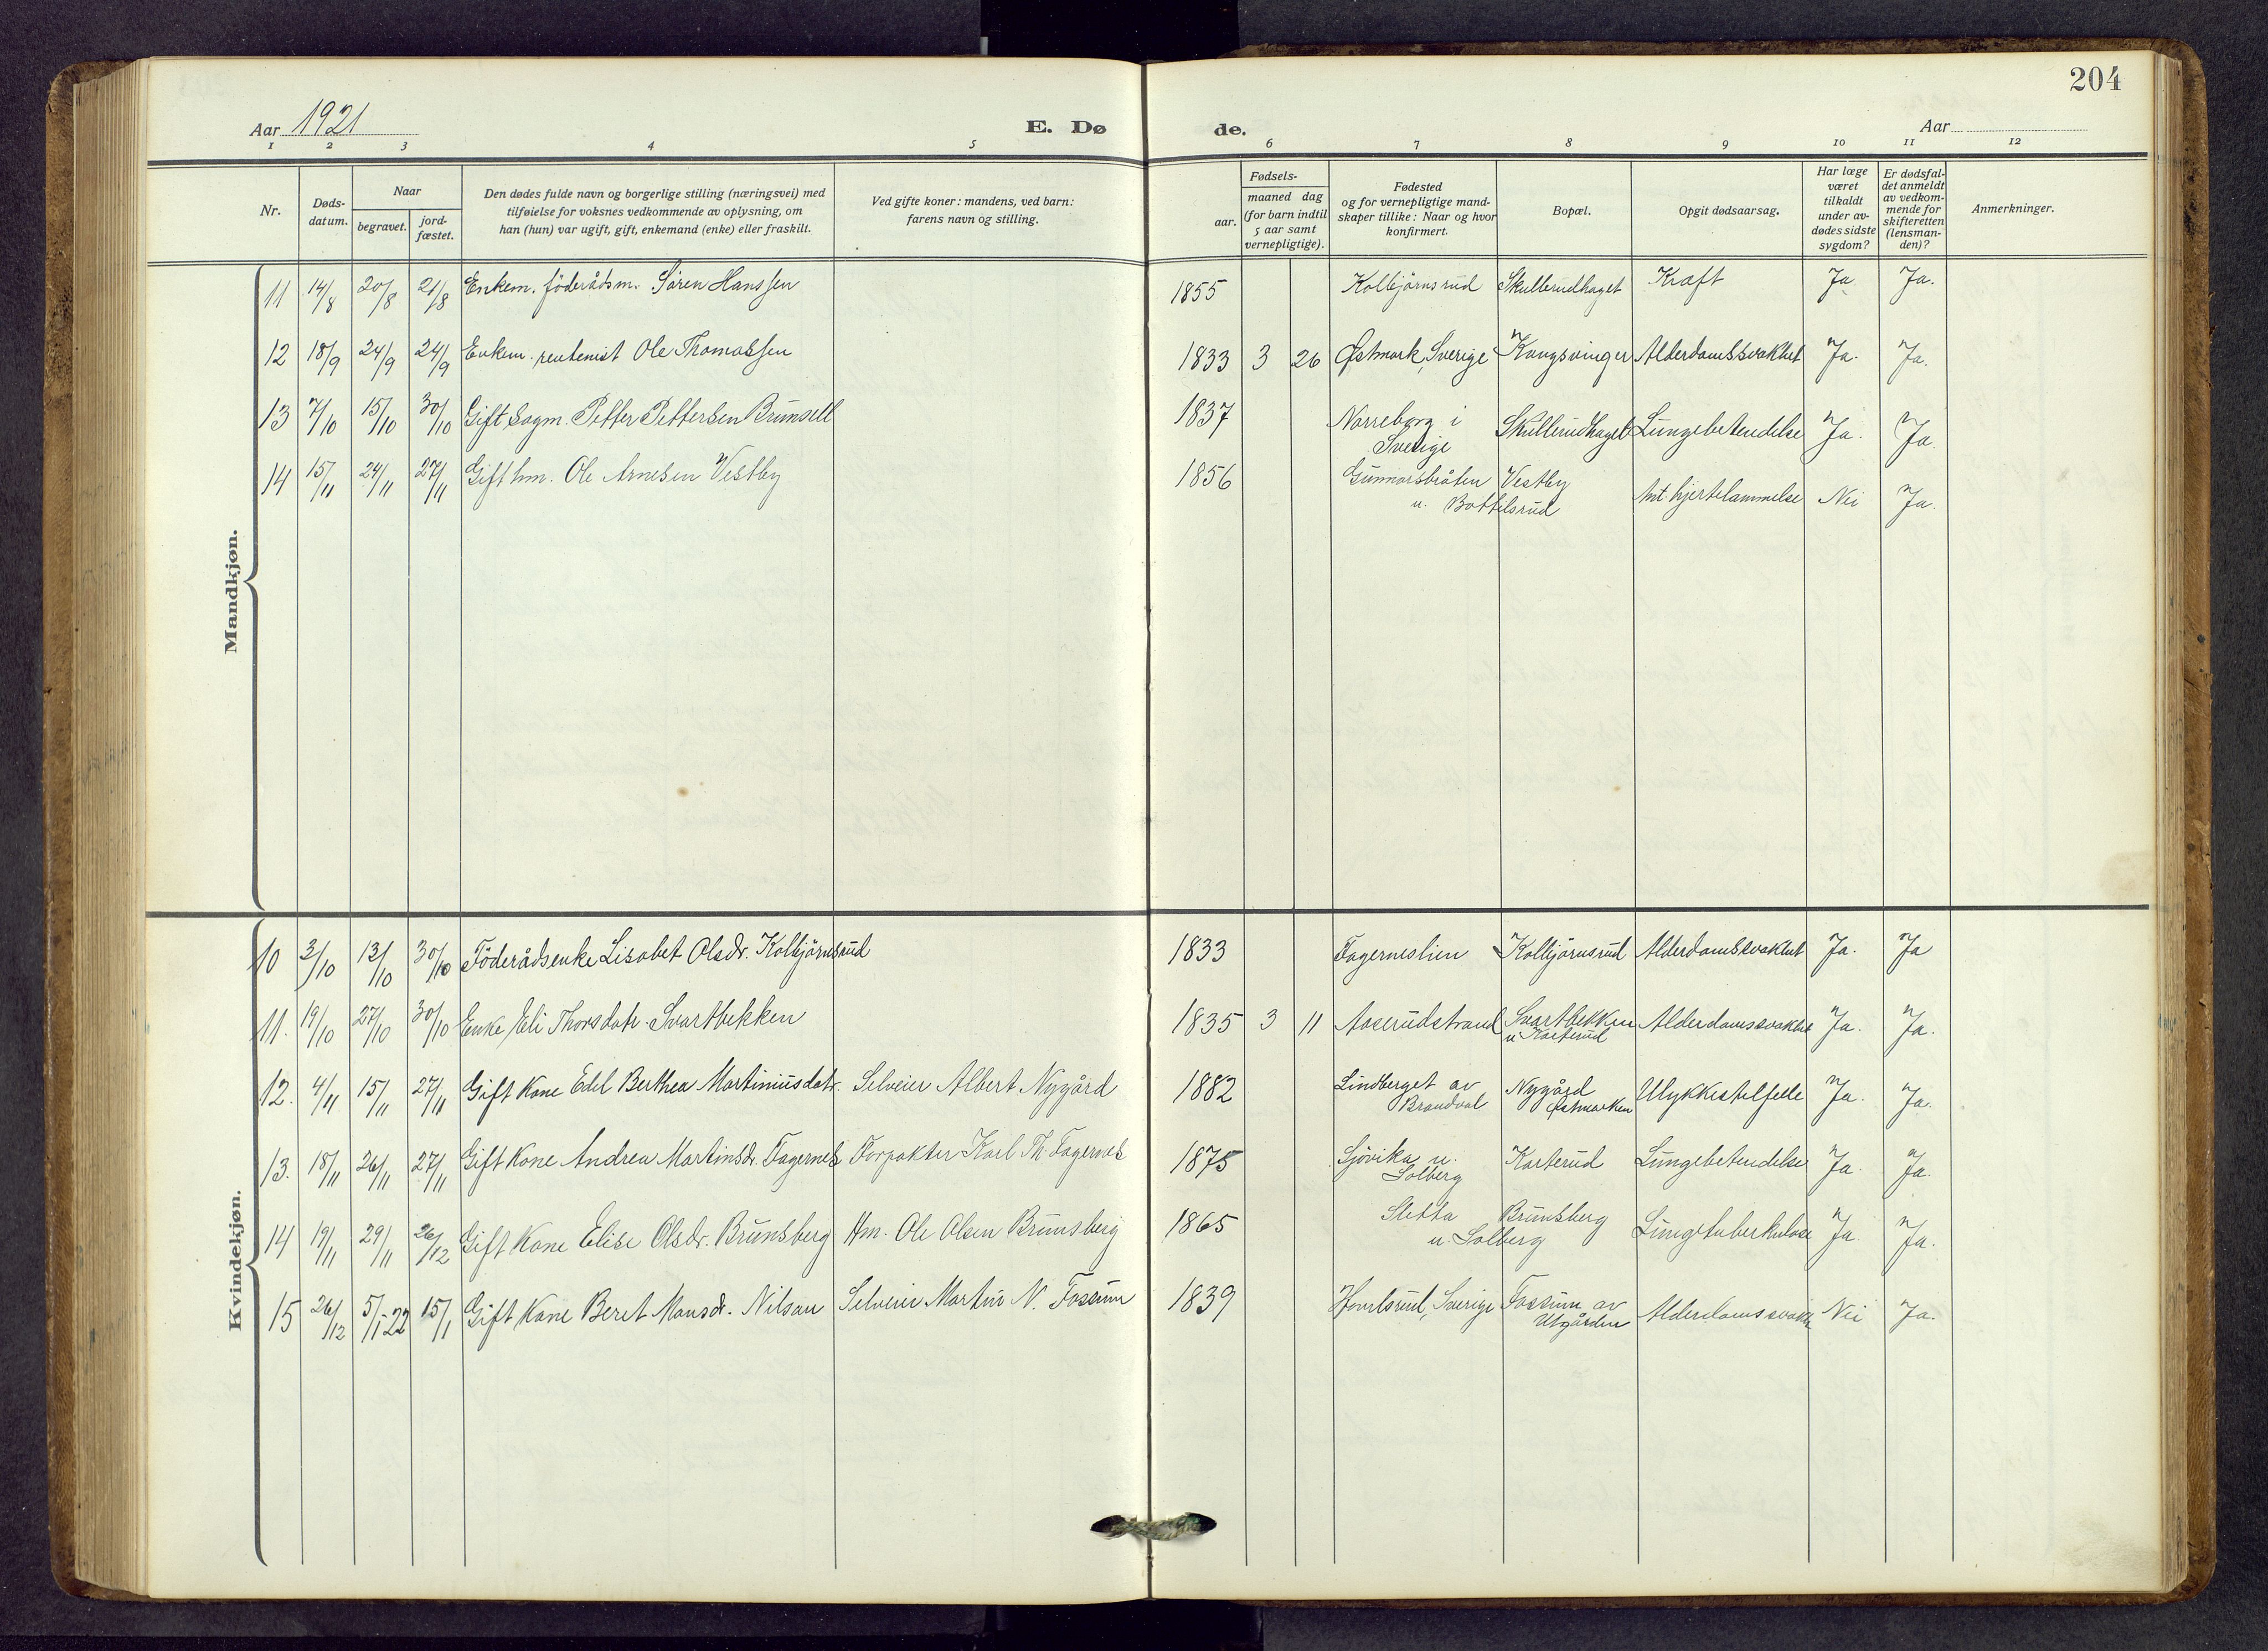 204
Aar 1921
E. Dø
de.
Aar
1 2 3 4 5 6 7 8 9 10 11 12
Nr.
Døds-
datum.
Naar
begravet.
jord-
fæstet.
Den dødes fulde navn og borgerlige stilling (næringsvei) med
tilføielse for voksnes vedkommende av oplysning, om
han (hun) var ugift, gift, enkemand (enke) eller fraskilt.
Ved gifte koner: mandens, ved barn:
farens navn og stilling.
aar.
Fødsels-
maaned dag
(for barn indtil
5 aar samt
vernepligtige).
Fødested
og for vernepligtige mand-
skaper tillike: Naar og hvor
konfirmert.
Bopæl.
Opgit dødsaarsag.
Har læge
været
tilkaldt
under av-
dødes sidste
sygdom?
Er dødsfal-
det anmeldt
av vedkom-
mende for
skifteretten
(lensman-
den)?
Anmerkninger.
Mandkjøn.
11 14/8 20/8 21/8 Enkem. föderådsm. Sören Hanssen 1855 Kolbjörnsrud Skullerudhaget Kræft Ja Ja.
12 18/9 24/9 24/9 Enkem. rentenist Ole Thomassen 1833 3 26 Østmark, Sverige Kongsvinger Alderdomssvakhet Ja. Ja.
13 7/10 15/10 30/10 Gift sagm. Petter Pettersen Brunsell 1837 Norreborg i Skullerudhaget Lungebetendelse Ja. Ja.
Sverige
14 15/11 24/11 27/11 Gift hm. Ole Arnesen Vestby 1856 Gunnarsbråten Vestby Ant. hjertelammelse Nei Ja.
u. Bottelsrud
Kvindekjøn.
10 3/10 13/10 30/10 Föderådsenke Lisabet Olsdr. Kolbjörnsrud 1833 Fagerneslien Kolbjörnsrud Alderdomssvakhet Ja. Ja
11. 19/10 27/10 30/10 Enke Eli Thorsdatr. Svartbekken 1835 3 11 Aaserudstrand Svartbekken Alderdomssvakhet Ja. Ja.
u. Karterud
12. 4/11 15/11 27/11 Gift Kone Edel Berthea Martiniusdatr. Selveier Albert Nygård 1882 Lindberget av Nygård Ulykkestilfelle Ja. Ja.
Brandval Østmarken
13. 18/11 26/11 27/11 Gift Kone Andrea Martinsdr. Fagernes Forpakter Karl Th. Fagernes 1875 Sjövika u. Karterud Lungebetendelse Ja. Ja.
Solberg
14 19/11 29/11 26/12 Gift Kone Elise Olsdr. Brunsberg Hm. Ole Olsen Brunsberg 1865 Sletta Brunsberg Lungetuberkulose Ja Ja.
u. Solberg
15 26/12 5/1-22 15/1 Gift Kone Beret Monsdr. Nilsson Selveier Martin N. Fossum 1839 Sverige Fossum av Nei Ja.
Utgården